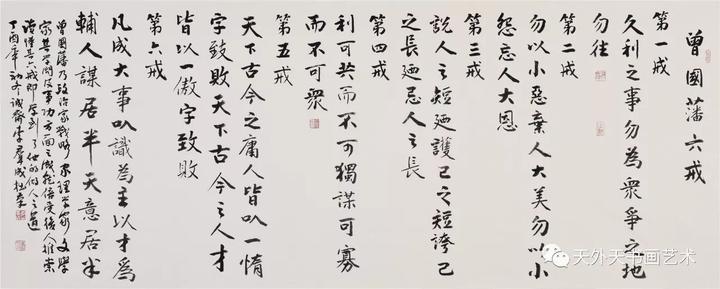 曾國藩六戒
第一戒
久利之事勿為衆爭之地
勿往
第二戒
勿以小惡棄人大美勿以小
怨忘人大恩
第三戒
説人之短廼護己之短誇己
之長廼忌人之長
第四戒
利可共而不可獨謀可寡
而不可衆
第五戒
天下古今之庸人皆以一惰
字致敗天下古今之人才
皆以一傲字致敗
第六戒
凡成大事以識為主以才為
輔人謀居半天意居半
曾國藩乃政治家戰略家理學家文學
家其學問及事功方面之成就倍受後人推崇
讀懂是六戒即學到了他的做人之道
丁酉年初冬誠齋李
天外天书画艺术